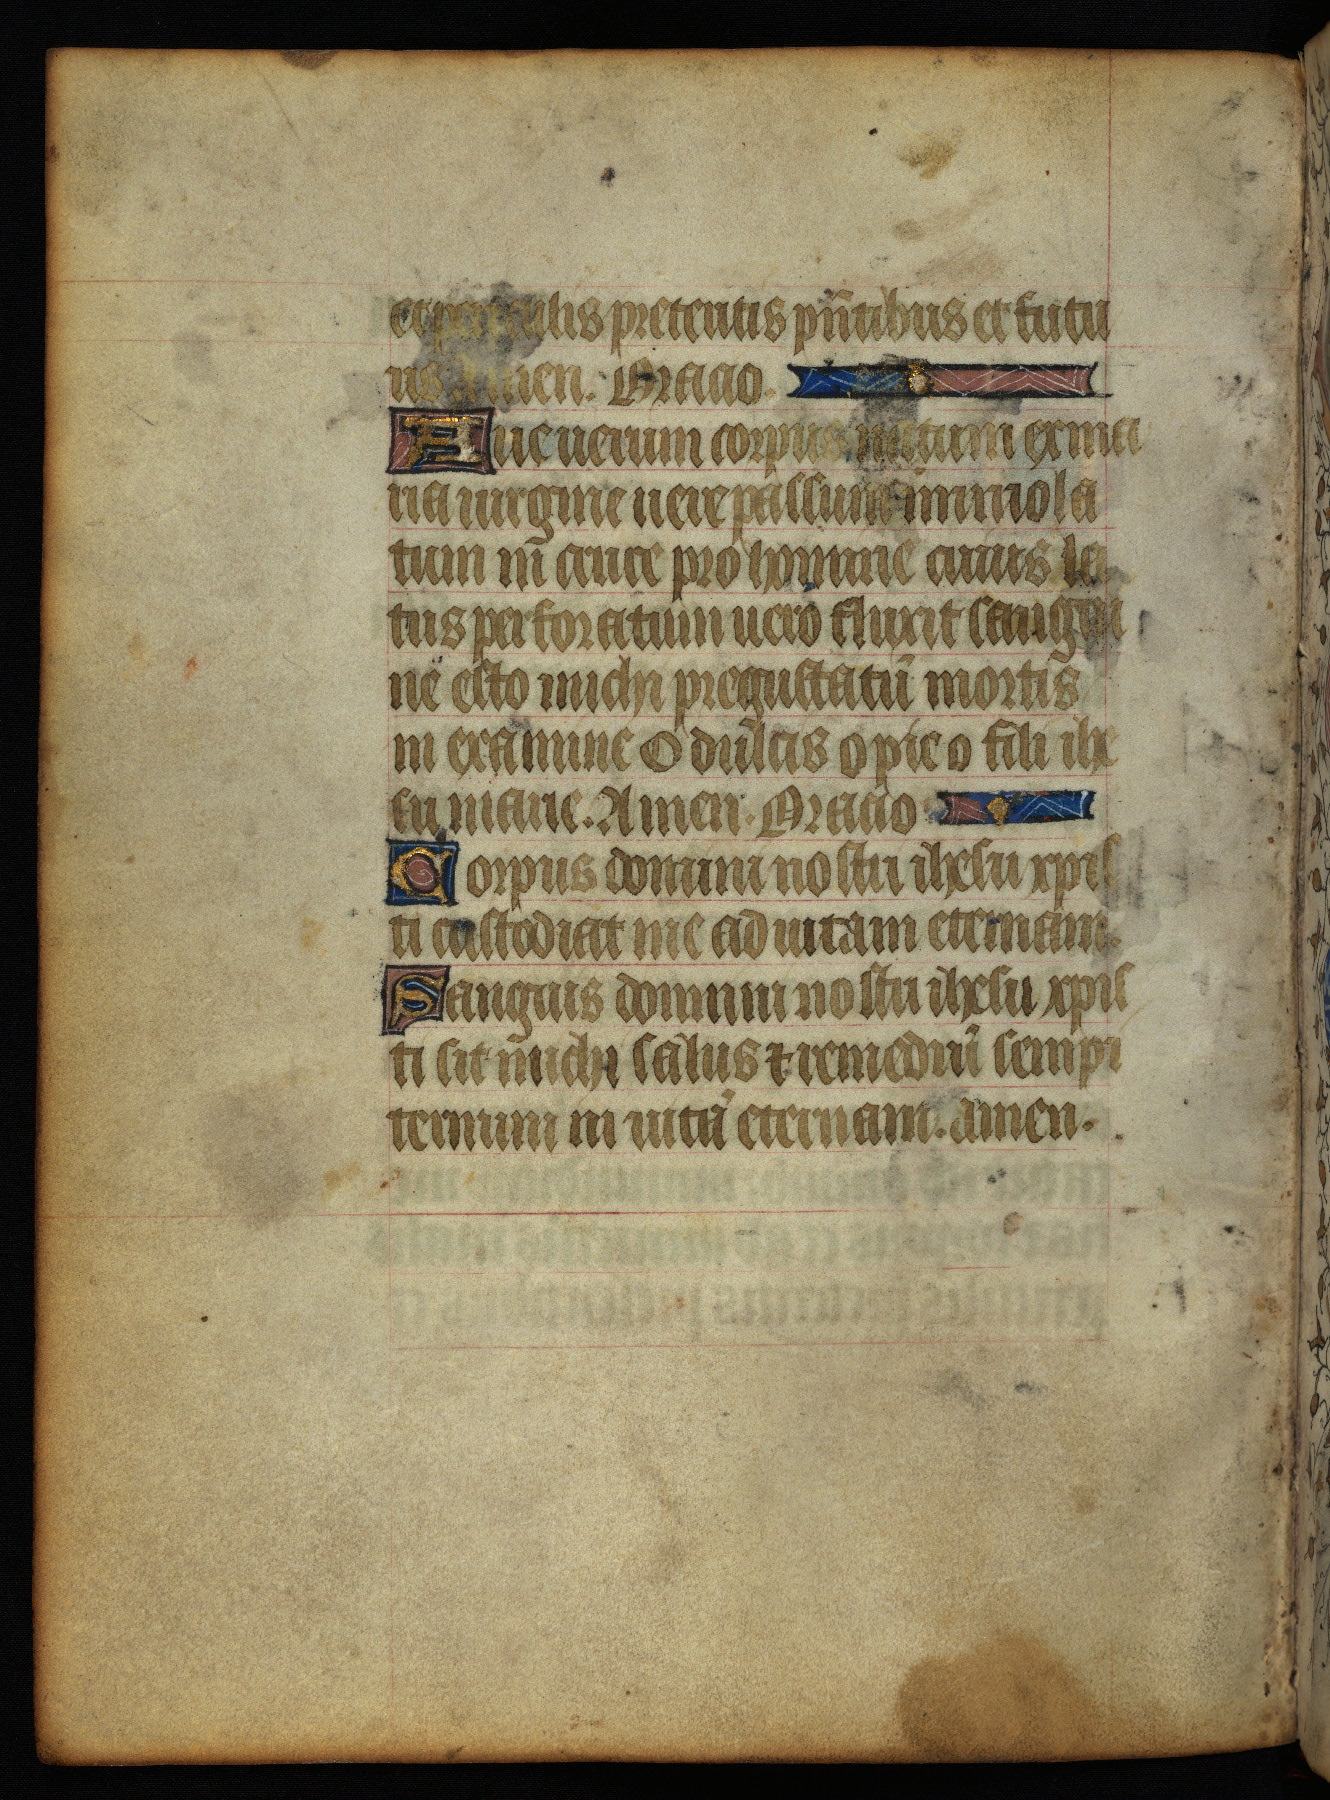 et periculis preteritis pñtibus et futu
ris Amen. Oracio.
Aue uerum corpus natum ex ma
ria uirgine uere passum immola
tum in cruce pro homine cuius la
tus perforatum uero fluxit sangui
ne esto michi pregustatũ mortis
in examine O dulcis o pie o fili ihe
su marie. Amen. Oracio
Corpus domini nostri ihesu xpis
ti custodiat me ad uitam eternam.
Sanguis domini nostri ihesu xpis
ti sit michi salus ⁊ remediũ sempi
ternum in uitã eternam. amen.